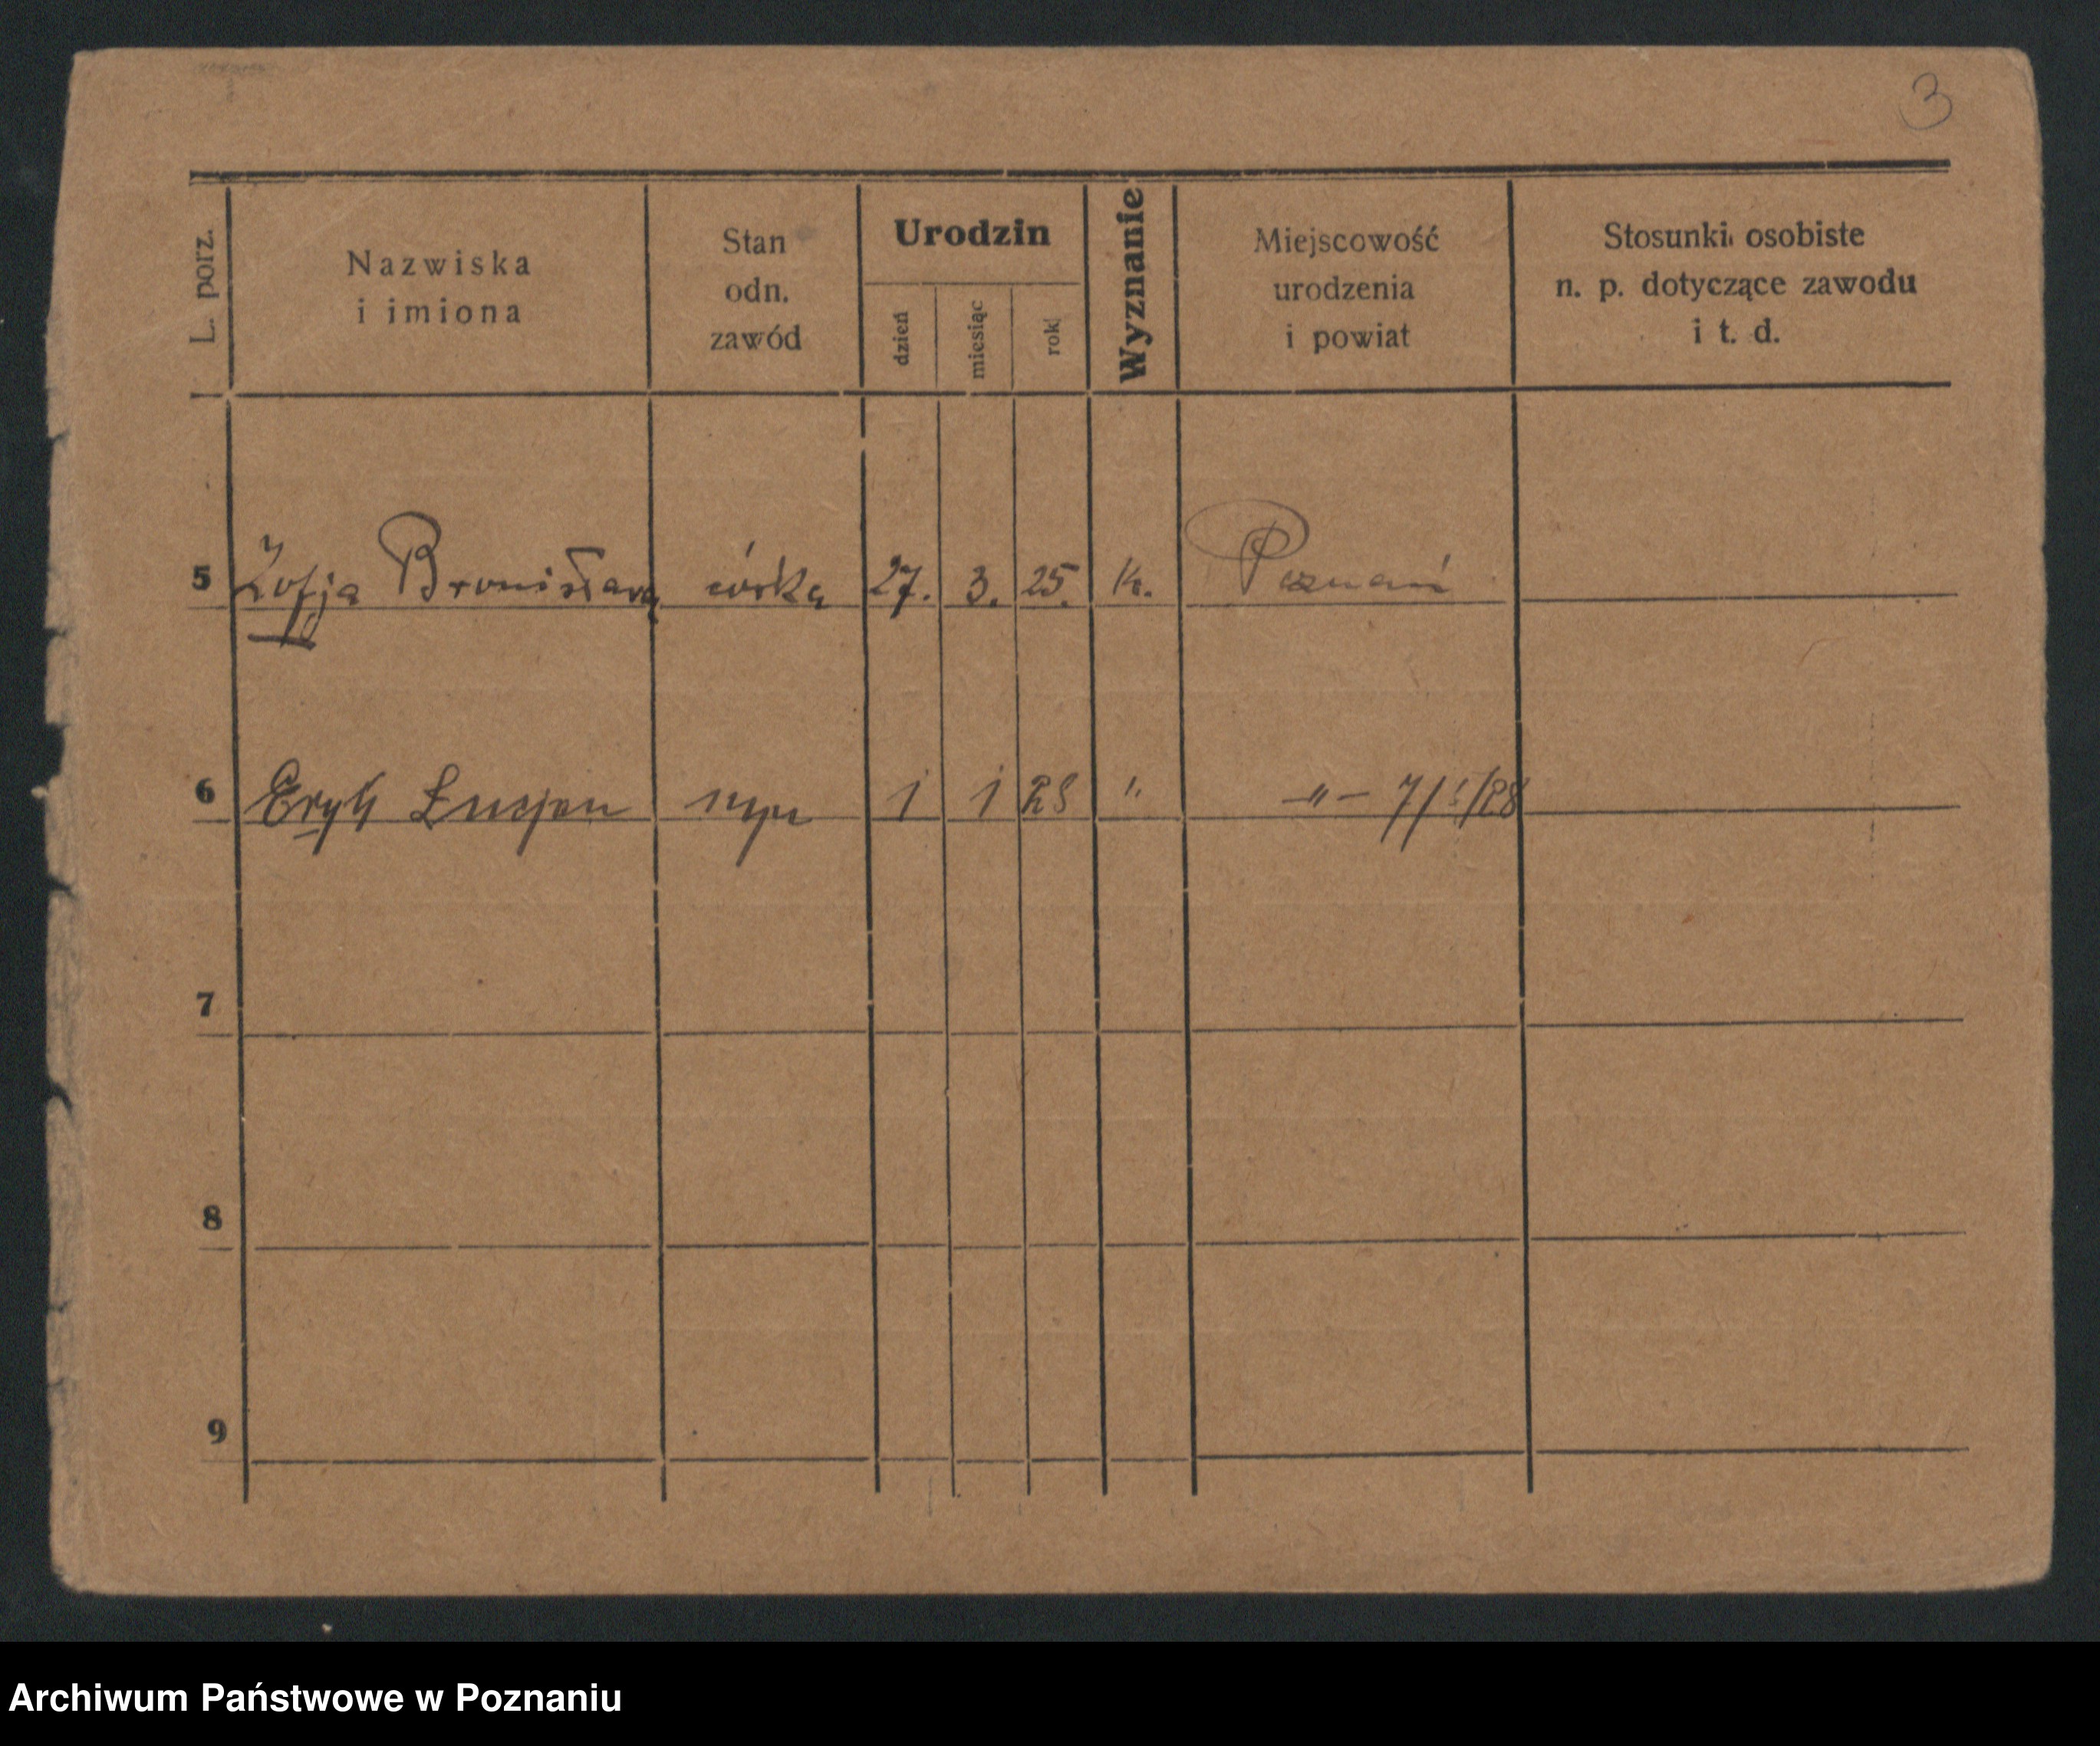 3
L. porz.
Nazwiska
i imiona
Stan
odn.
zawód
Urodzin
dzień
miesiąc
rok
Wyznanie
Miejscowość
urodzenia
i powiat
Stosunki osobiste
n. p. dotyczące zawodu
i t. d.
5 Zofja Bronisława córka 27. 3. 25. K. Poznań
6 Eryk Lucjan syn 1 1 28 " —"— 7/1/28
7
8
9
Archiwum Państwowe w Poznaniu